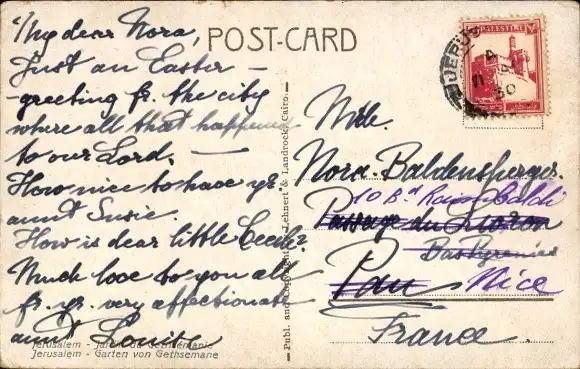 My dear Nora,
Just an Easter –
– greeting fr. the city
where all that happened
to our Lord. —
How nice to have yr.
aunt Susie.
How is dear little Cecile?
Much love to you all
fr. yr. very affectionate
aunt Louise
POST-CARD
PALESTINE
JERUS
30
Publ. and Copyright by Lehnert & Landrock, Cairo.
Mlle.
Nora Baldensperger.
10 Bd Raimbaldi
Passage du
Bas Pyrenées
Pau Nice
France.
Jerusalem - Jardin de Gethsémanie
Jerusalem - Garten von Gethsemane